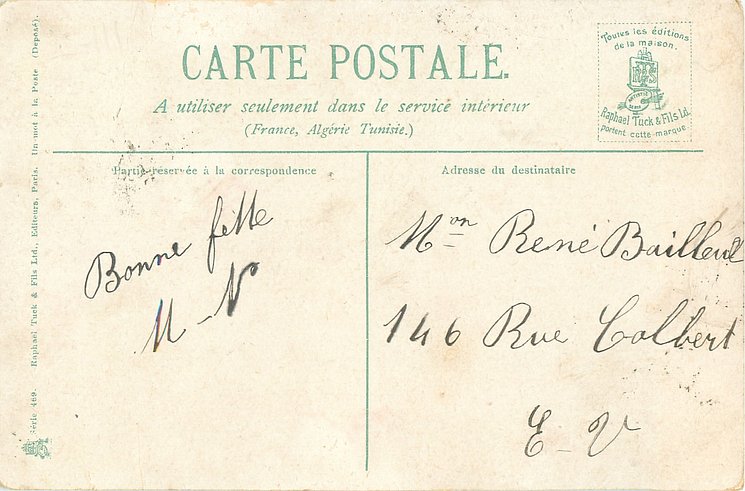 CARTE POSTALE.
A utiliser seulement dans le service intérieur
(France, Algérie Tunisie.)
Toutes les éditions
de la maison.
ARTISTIC
SERIES
Raphael Tuck & Fils Ld.
portent cette marque
Partie réservée à la correspondence
Adresse du destinataire
Bonne fette
M - N
Mon René Bailleul
146 Rue Colbert
E - V
Série 469. Raphael Tuck & Fils Ltd., Editeurs, Paris. Un mot à la Poste (Deposé)